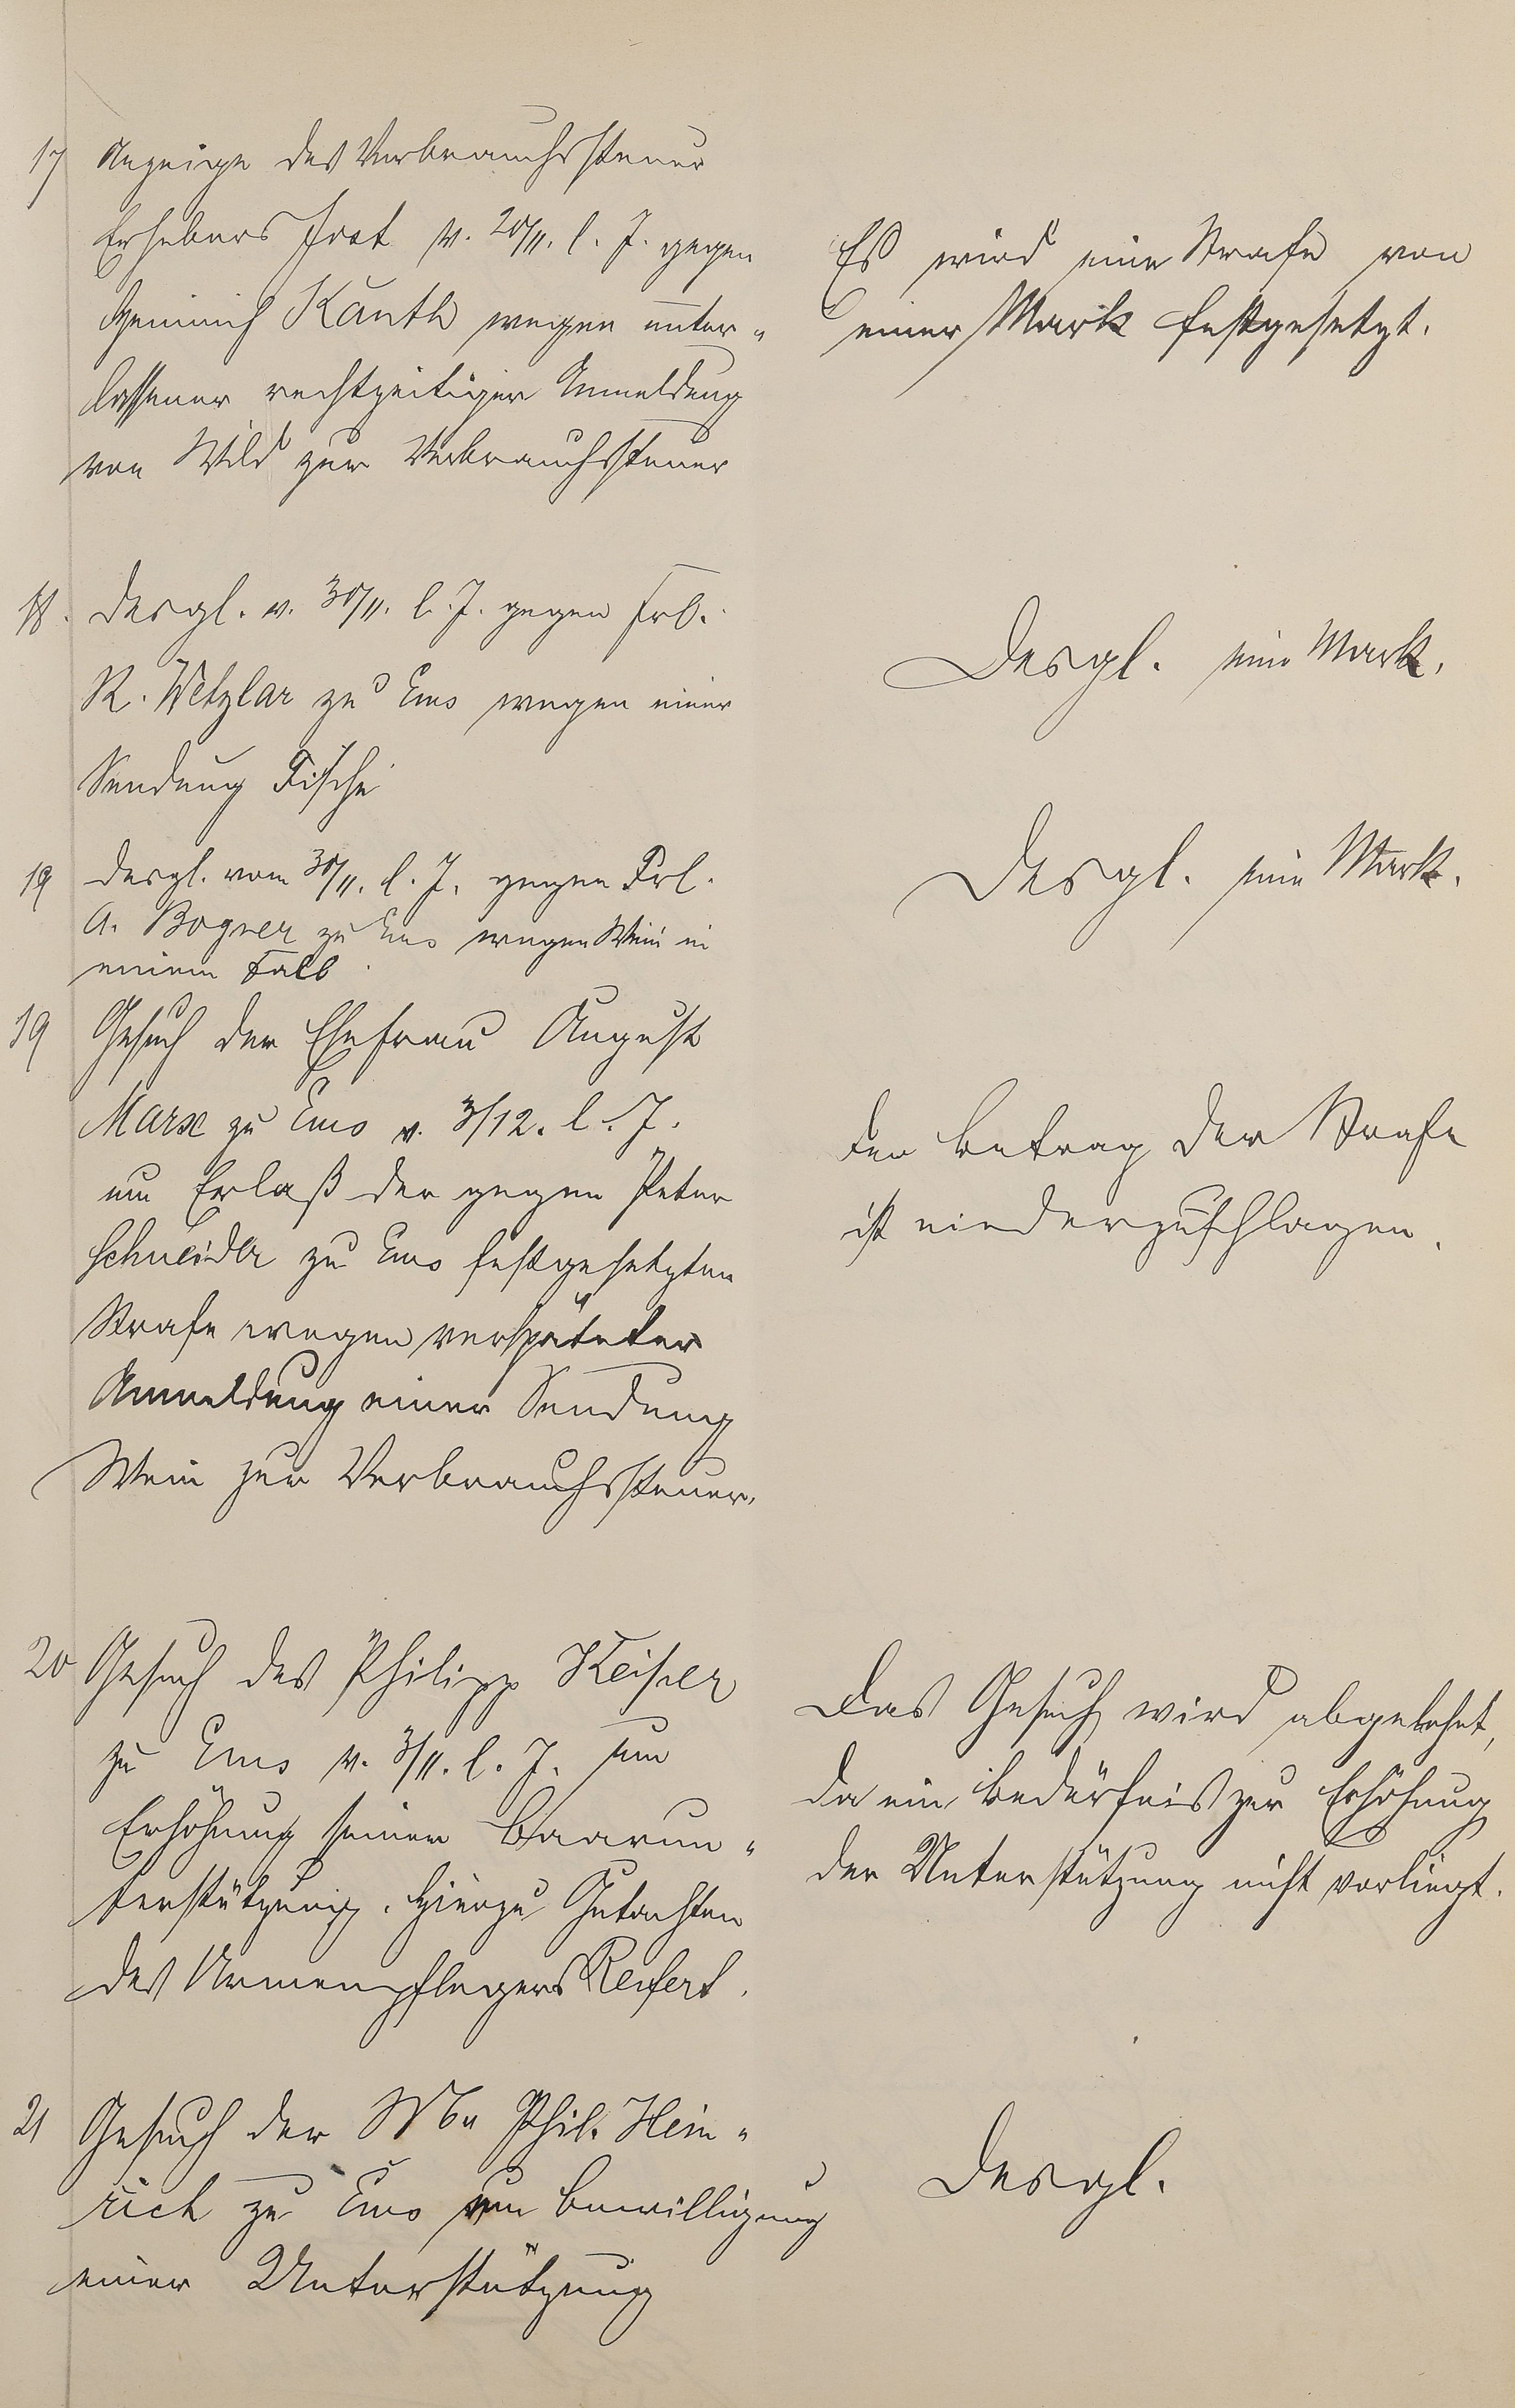 17 Anzeige des Verbrauchssteuer
Erhebers Jost v. 20/11. l. J. gegen
Heinrich Kauth wegen unter„
lassener rechtzeitiger Anmeldung
von Wild zur Verbrauchssteuer
Es wird eine Strafe von
einer Mark festgesetzt.
18. Desgl. v. 30/11. l. J. gegen Frl.
R. Wetzlar zu Ems wegen einer
Sendung Fische
Desgl. eine Mark.
19 Desgl. vom 30/11. l. J. gegen Frl.
A. Bogner zu Ems wegen Wein in
einem Faß
Desgl. eine Mark.
19 Gesuch der Ehefrau August
Marx zu Ems v. 3/12. l. J.
um Erlaß der gegen Peter
Schneider zu Ems festgesetzten
Strafe wegen verspäteter
Anmeldung einer Sendung
Wein zur Verbrauchssteuer.
Der Betrag der Strafe
ist niederzuschlagen.
20 Gesuch des Philipp Keiser
zu Ems v. 3/11. l. J. um
Erhöhung seiner Baarun„
terstützung. Hierzu Gutachten
des Armenpflegers Reifert.
Das Gesuch wird abgelehnt,
da ein Bedürfnis zur Erhöhung
der Unterstützung nicht vorliegt.
21 Gesuch der Ww Phil. Hein„
rich zu Ems um Bewilligung
einer Unterstützung
Desgl.